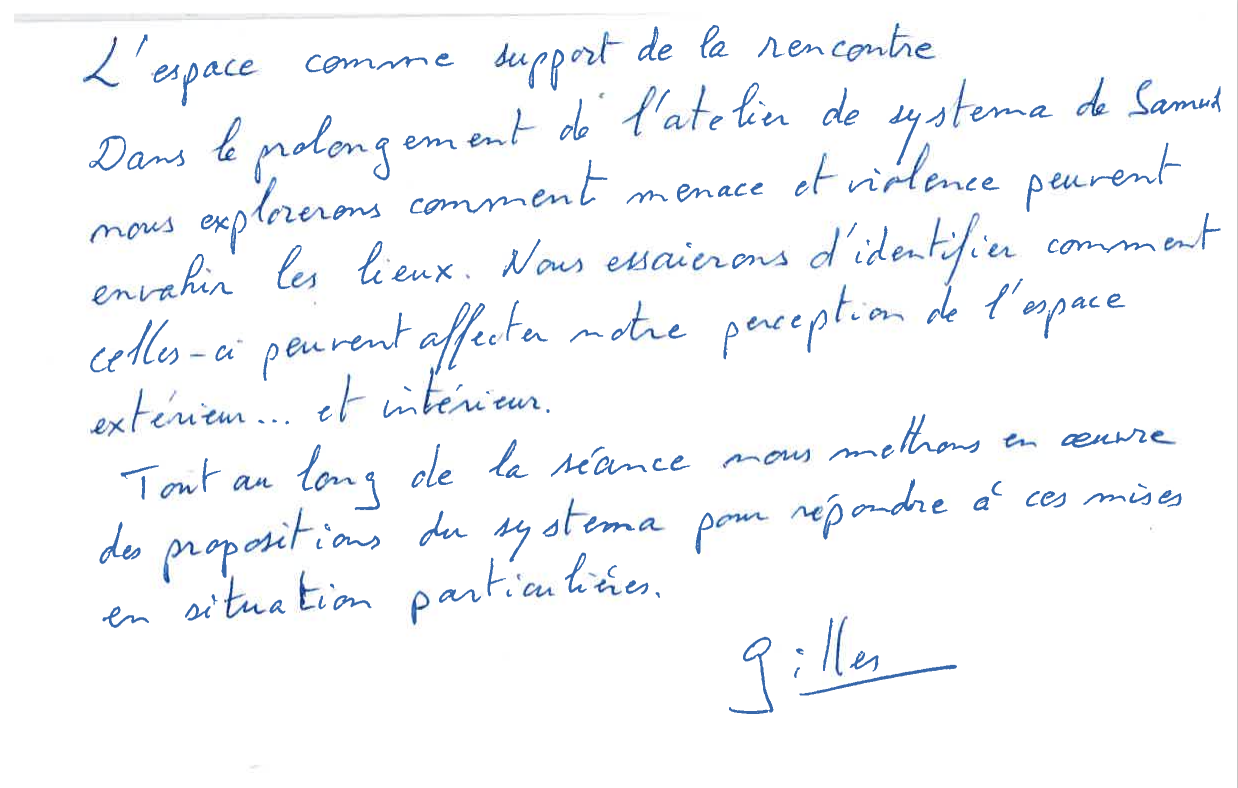 L'espace comme support de la rencontre
Dans le prolongement de l'atelier de systema de Samuel
nous explorerons comment menace et violence peuvent
envahir les lieux. Nous essaierons d'identifier comment
celles-ci peuvent affecter notre perception de l'espace
extérieur... et intérieur.
Tout au long de la séance nous mettrons en œuvre
des propositions du systema pour répondre à ces mises
en situation particulières.
Gilles